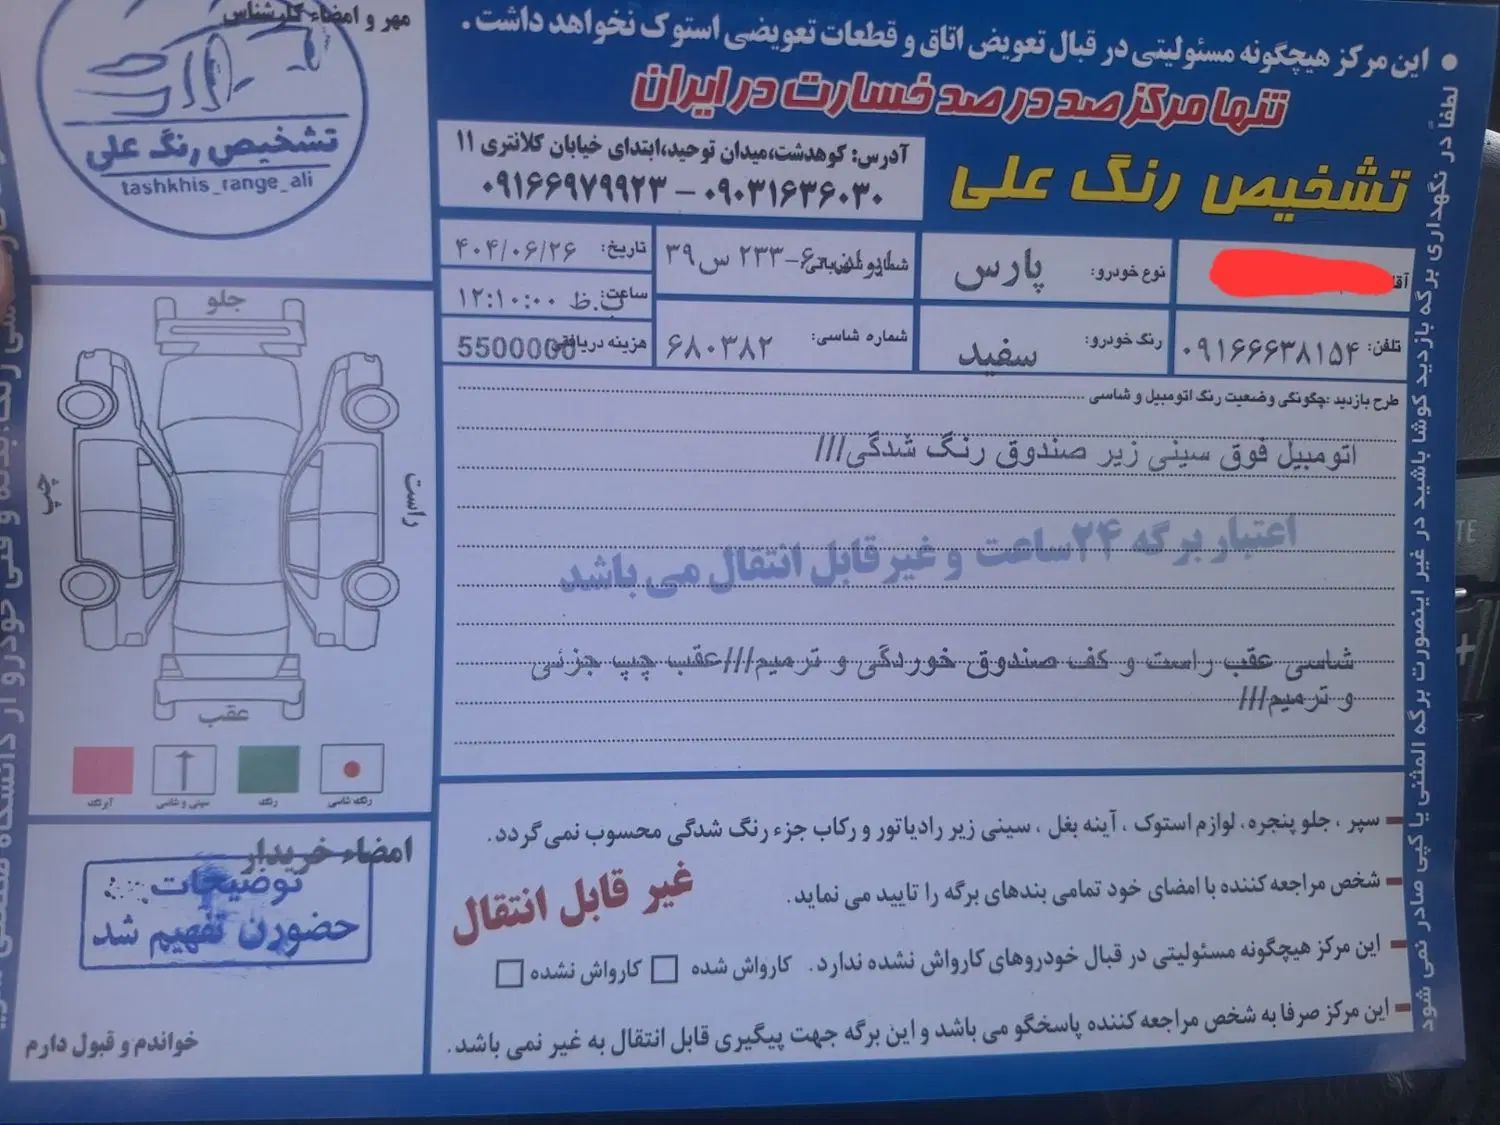 این مرکز هیچگونه مسئولیتی در قبال تعویض اتاق و قطعات تعویضی استوک نخواهد داشت.
تنها مرکز صد در صد خسارت در ایران
تشخیص رنگ علی
آدرس: کوهدشت،میدان توحید،ابتدای خیابان کلانتری ۱۱
۰۹۰۳۱۶۳۶۰۳۰ – ۰۹۱۶۶۹۷۹۹۲۳
مهر و امضاء کارشناس
تشخیص رنگ علی
tashkhis_range_ali
نوع خودرو: پارس
۲۳۳ س ۳۹
تاریخ: ۴۰۴/۰۶/۲۶
ساعت: ۱۲:۱۰:۰۰ ب.ظ
تلفن: ۰۹۱۶۶۶۳۸۱۵۴
رنگ خودرو: سفید
شماره شاسی: ۶۸۰۳۸۲
هزینه دریافتی: 5500000
طرح بازدید :چگونگی وضعیت رنگ اتومبیل و شاسی
اتومبیل فوق سینی زیر صندوق رنگ شدگی///
اعتبار برگه ۲۴ساعت و غیرقابل انتقال می باشد
شاسی عقب راست و کف صندوق خوردگی و ترمیم///عقب چپ جزئی
و ترمیم///
جلو
چپ
راست
عقب
رنگ شاسی
رنگ
سینی و شاسی
آبرنگ
سپر ، جلو پنجره، لوازم استوک ، آینه بغل ، سینی زیر رادیاتور و رکاب جزء رنگ شدگی محسوب نمی گردد.
شخص مراجعه کننده با امضای خود تمامی بندهای برگه را تایید می نماید.
غیر قابل انتقال
این مرکز هیچگونه مسئولیتی در قبال خودروهای کارواش نشده ندارد. کارواش شده کارواش نشده
این مرکز صرفا به شخص مراجعه کننده پاسخگو می باشد و این برگه جهت پیگیری قابل انتقال به غیر نمی باشد.
امضاء خریدار
توضیحات
حضورن تفهیم شد
خواندم و قبول دارم
لطفاً در نگهداری برگه بازدید کوشا باشید در غیر اینصورت برگه المثنی یا کپی صادر نمی شود